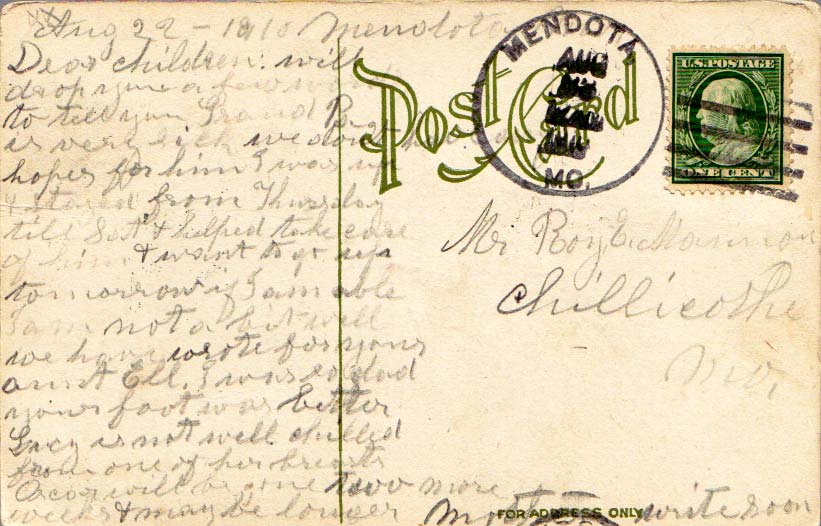 Aug 22 - 1910 Mendota
Dear children: will
drop you a few
to tell you Grand Pa
is very sick we don't have
hopes for him I was up
& stayed from Thursday
till Sat & helped to take care
of him & want to go up
tomorrow if I am able
I am not a bit well
we have wrote for your
aunt Ell. I was so glad
your foot was better
Lucy is not well chilled
from one of her breasts
Oscar will be gone two more
weeks & may be longer
Mother write soon
Post Card
MENDOTA
AUG
MO.
U.S. POSTAGE
ONE CENT
Mr Roy E. Mannon
Chillicothe
Mo.
FOR ADDRESS ONLY